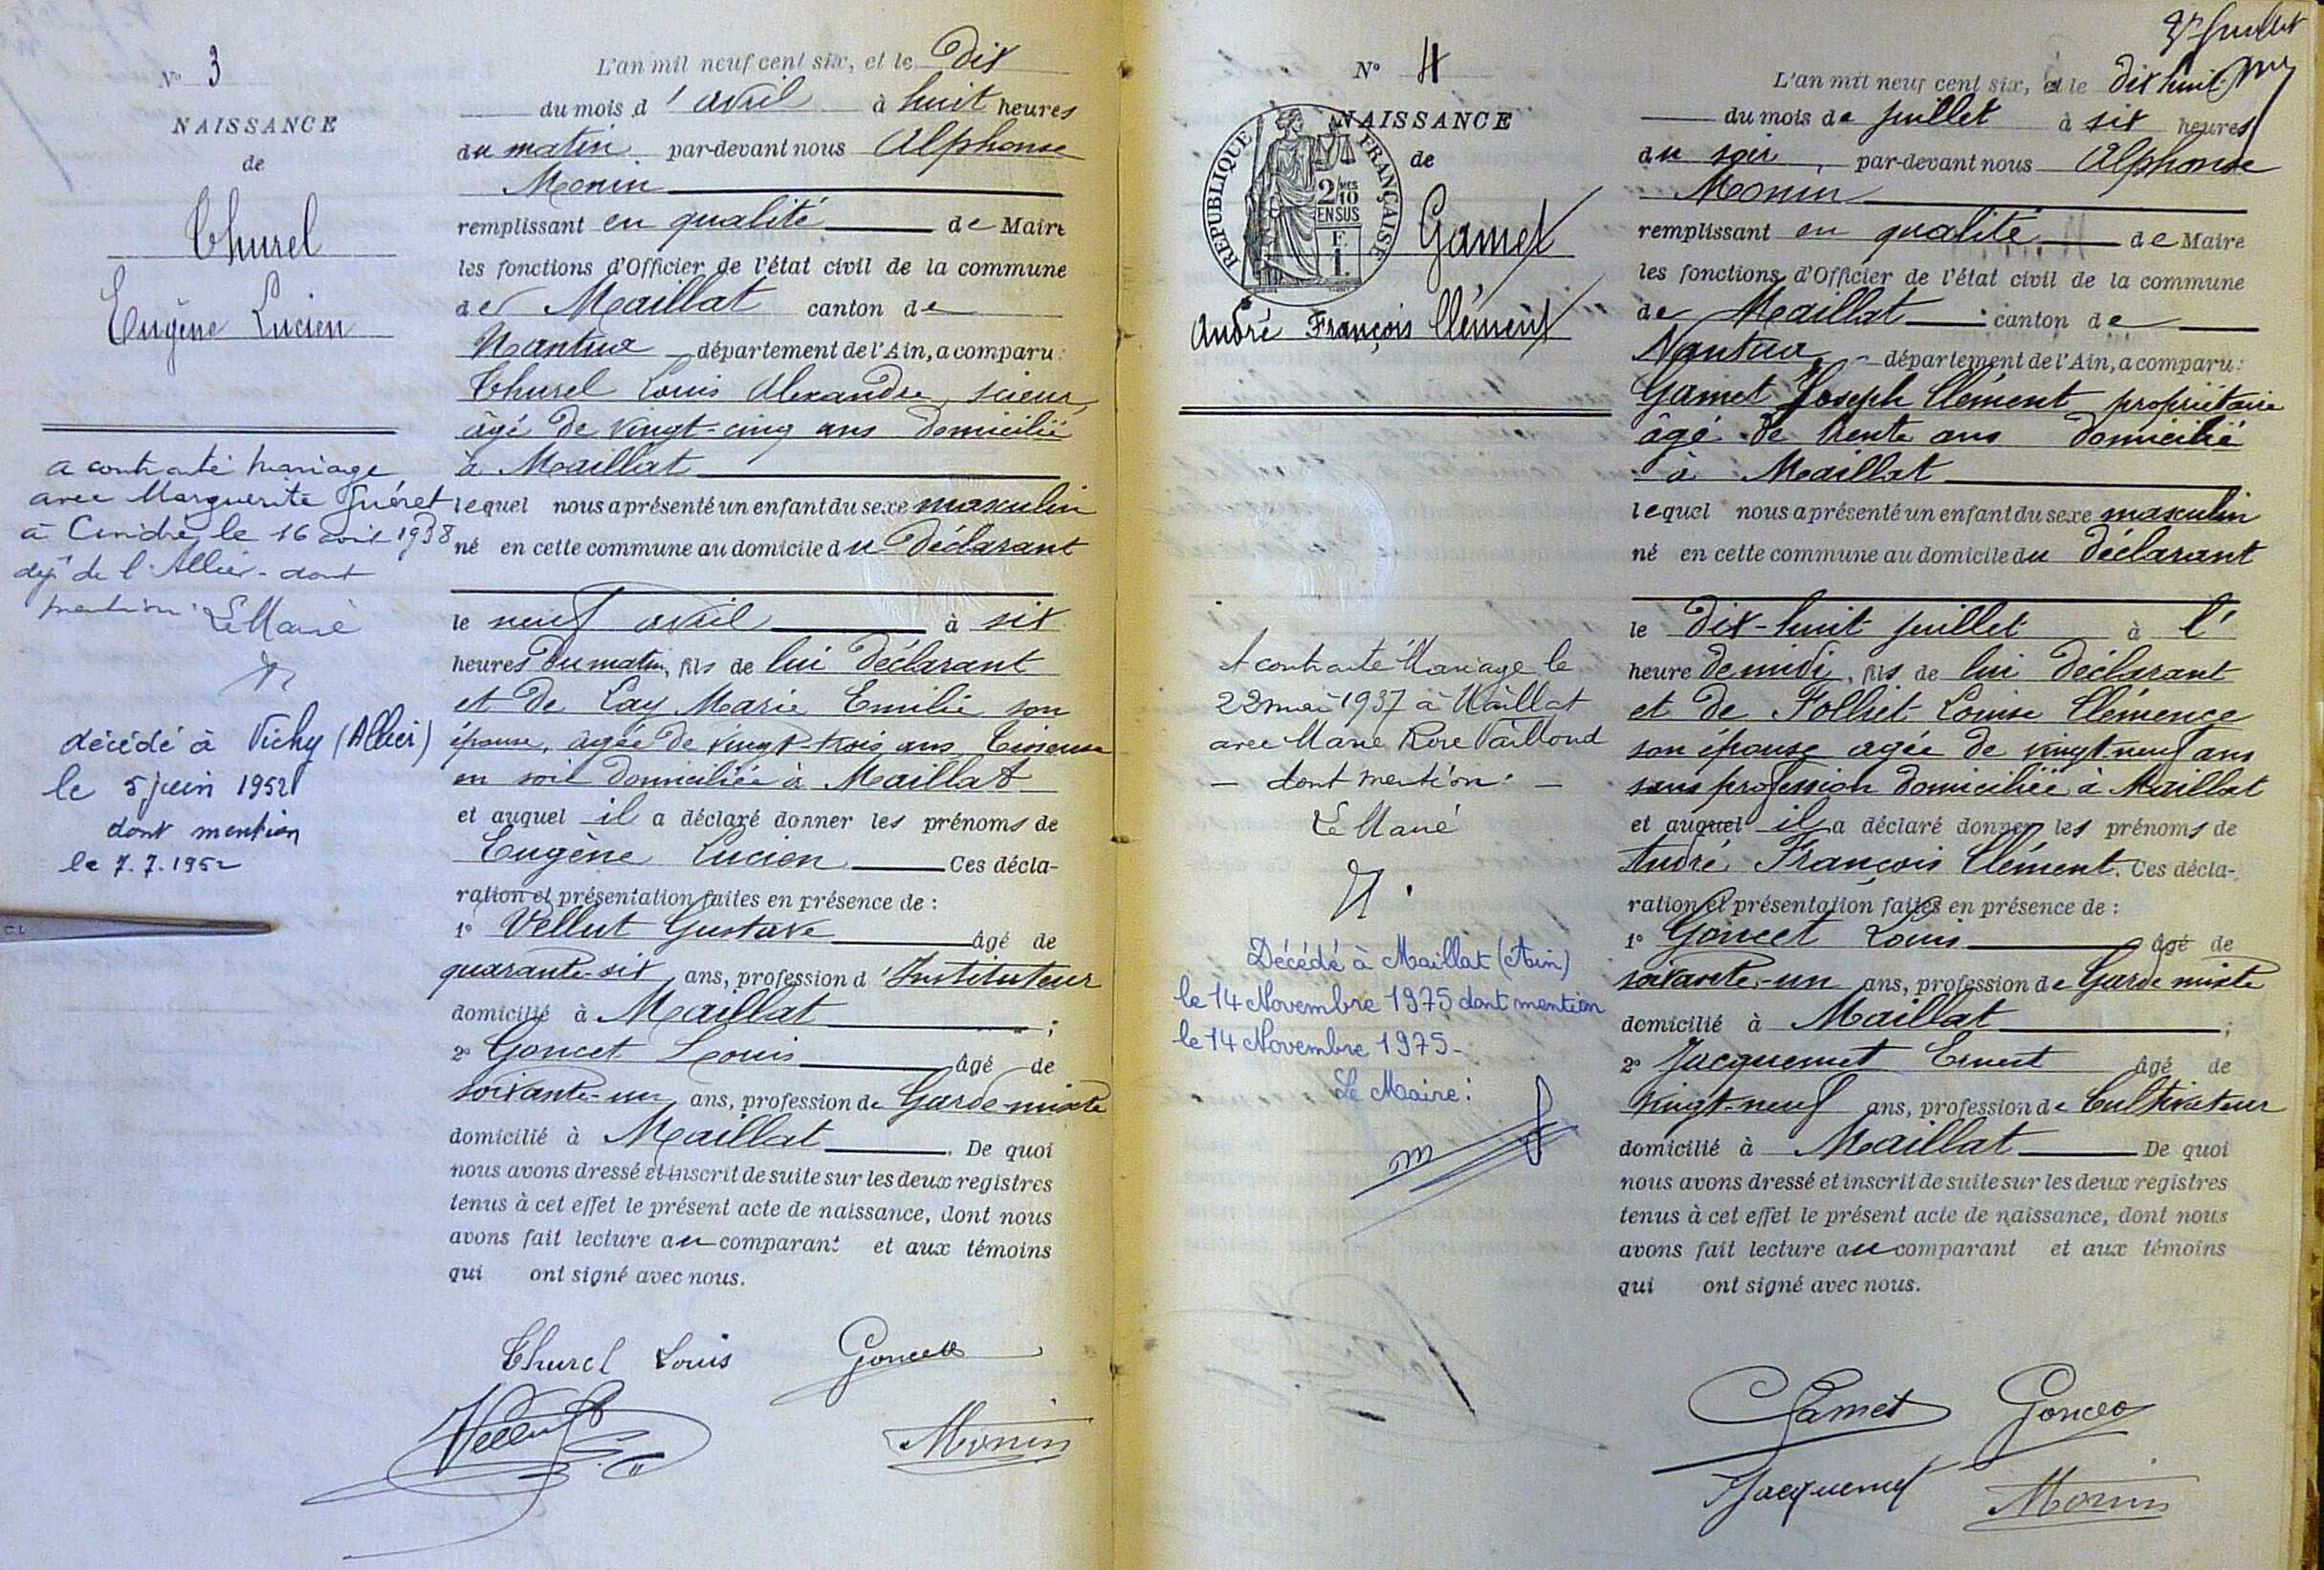 N° 3
NAISSANCE
de
Thurel
Eugène Lucien
a contracté mariage
avec Marguerite Guéret
à Cindré, le 16 avril 1938
dépt de l'Allier - dont
mention. Le Maire
décédé à Vichy (Allier)
le 5 juin 1952
dont mention
le 7.7.1952
L'an mil neuf cent six, et le Dix
du mois d'avril à huit heures
du matin, par-devant nous Alphonse
Monin
remplissant en qualité de Maire
les fonctions d'Officier de l'état civil de la commune
de Maillat canton de
Nantua département de l'Ain, a comparu :
Thurel Louis Alexandre, scieur,
âgé de vingt-cinq ans domicilié
à Maillat
lequel nous a présenté un enfant du sexe masculin
né en cette commune au domicile du Déclarant
le neuf avril à six
heures du matin, fils de lui Déclarant
et de Lay Marie Emilie son
épouse, âgée de vingt-trois ans Tisseuse
en soie domiciliée à Maillat
et auquel il a déclaré donner les prénoms de
Eugène Lucien Ces décla-
ration et présentation faites en présence de :
1° Vellut Gustave âgé de
quarante-six ans, profession d'Instituteur
domicilié à Maillat ;
2° Goncet Louis âgé de
soixante-un ans, profession de Garde-mixte
domicilié à Maillat. De quoi
nous avons dressé et inscrit de suite sur les deux registres
tenus à cet effet le présent acte de naissance, dont nous
avons fait lecture au comparant et aux témoins
qui ont signé avec nous.
Thurel Louis Goncet
Vellut Monin
N° 4
NAISSANCE
de
REPUBLIQUE FRANÇAISE
2 MES
10
EN SUS
Gamet
André François Clément
A contracté Mariage le
22 mai 1937 à Maillat
avec Marie Rose Vailloud
- dont mention : -
Le Maire
Décédé à Maillat (Ain)
le 14 Novembre 1975 dont mention
le 14 Novembre 1975 -
Le Maire :
Juillet
L'an mil neuf cent six, et le Dix huit
du mois de juillet à six heures
du soir, par-devant nous Alphonse
Monin
remplissant en qualité de Maire
les fonctions d'Officier de l'état civil de la commune
de Maillat canton de
Nantua département de l'Ain, a comparu :
Gamet Joseph Clément propriétaire
âgé de trente ans domicilié
à Maillat
lequel nous a présenté un enfant du sexe masculin
né en cette commune au domicile du Déclarant
le Dix-huit juillet à l'
heure de midi, fils de lui Déclarant
et de Folliet Louise Clémence
son épouse agée de vingt-neuf ans
sans profession domiciliée à Maillat
et auquel il a déclaré donner les prénoms de
André François Clément. Ces décla-
ration et présentation faites en présence de :
1° Goncet Louis âgé de
soixante-un ans, profession de Garde mixte
domicilié à Maillat ;
2° Jacquemet Ernest âgé de
vingt-neuf ans, profession de Cultivateur
domicilié à Maillat De quoi
nous avons dressé et inscrit de suite sur les deux registres
tenus à cet effet le présent acte de naissance, dont nous
avons fait lecture au comparant et aux témoins
qui ont signé avec nous.
Gamet Goncet
Jacquemet Monin